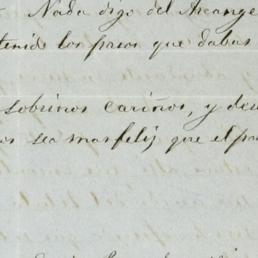 Nada digo del Arcange
tenido los pasos que dabas
sobrinos cariños, y des
os sea mas feliz que el pa